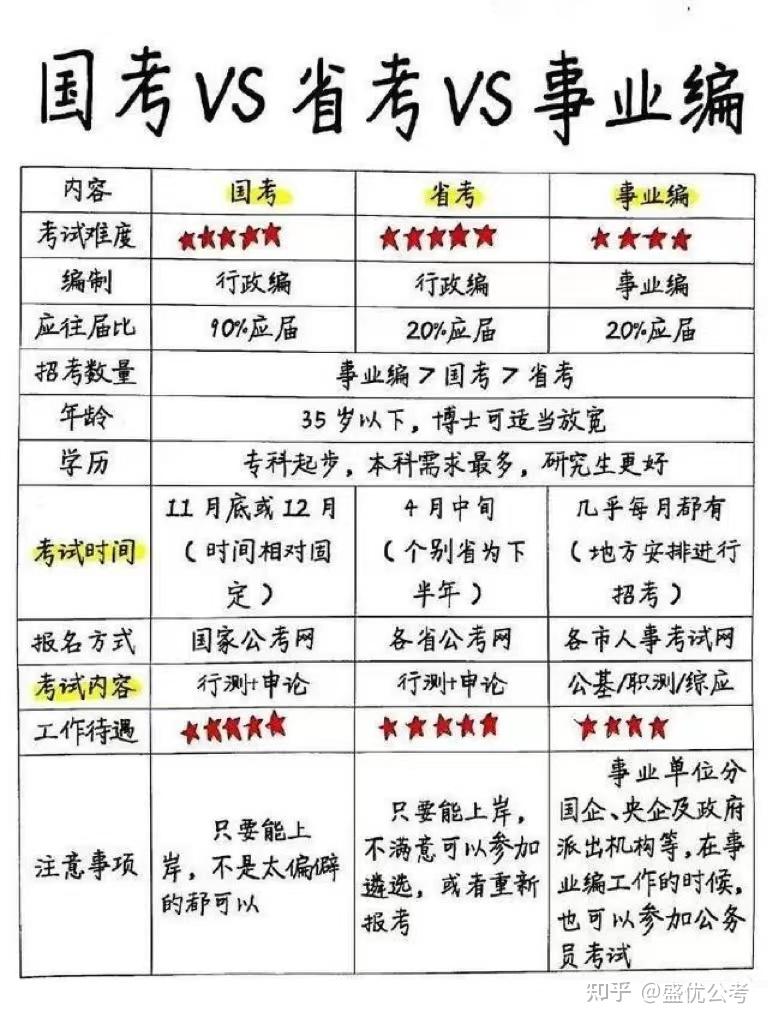 国考VS省考VS事业编
内容 国考 省考 事业编
考试难度 ★★★★★ ★★★★★ ★★★★
编制 行政编 行政编 事业编
应往届比 90%应届 20%应届 20%应届
招考数量 事业编>国考>省考
年龄 35岁以下,博士可适当放宽
学历 专科起步,本科需求最多,研究生更好
考试时间
11月底或12月
(时间相对固
定)
4月中旬
(个别省为下
半年)
几乎每月都有
(地方安排进行
招考)
报名方式 国家公考网 各省公考网 各市人事考试网
考试内容 行测+申论 行测+申论 公基/职测/综应
工作待遇 ★★★★★ ★★★★★ ★★★★
注意事项
只要能上
岸,不是太偏僻
的都可以
只要能上岸,
不满意可以参加
遴选,或者重新
报考
事业单位分
国企、央企及政府
派出机构等,在事
业编工作的时候,
也可以参加公务
员考试
知乎 @盛优公考